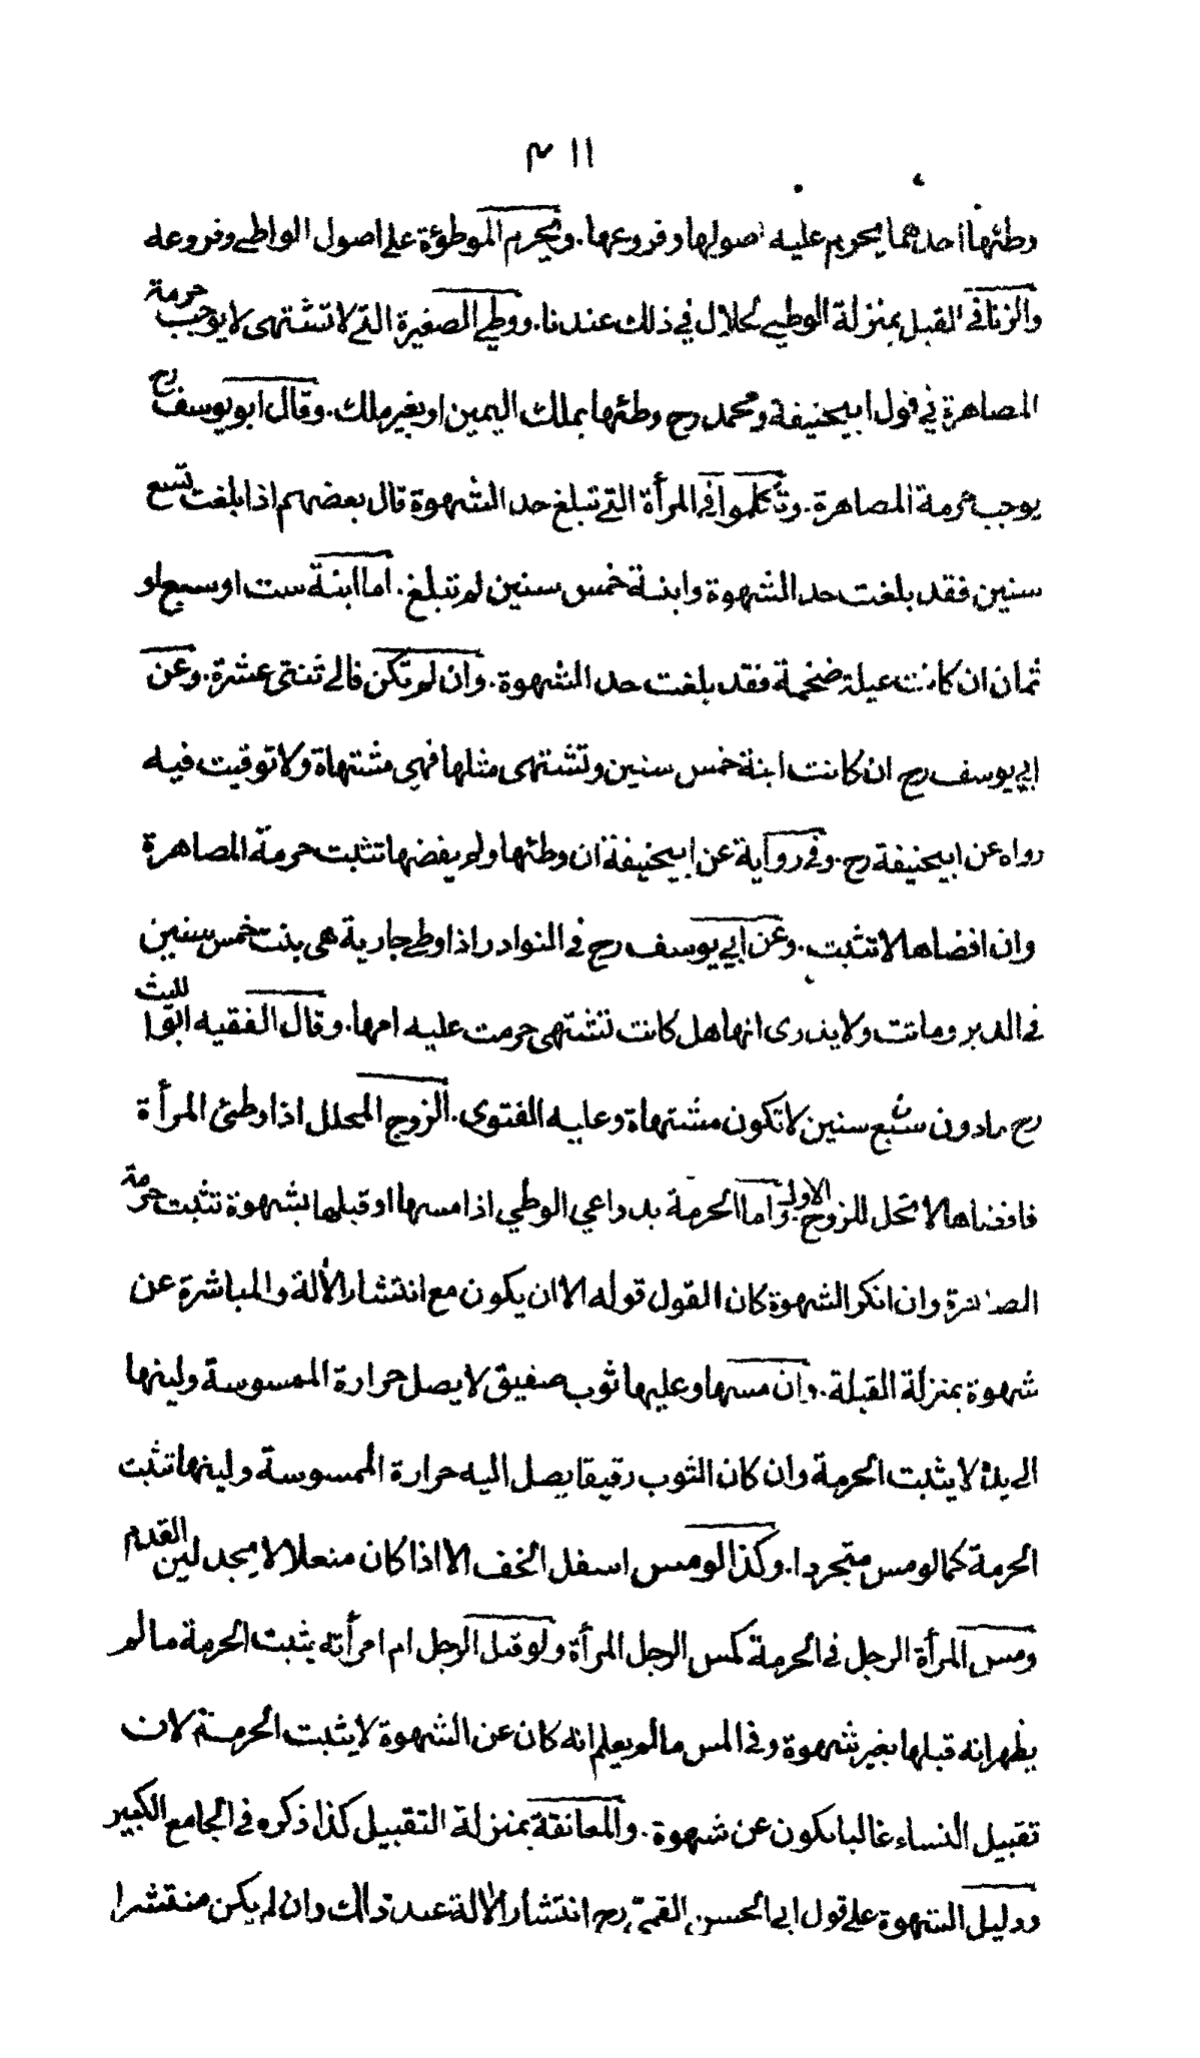 ٣١١
وطئها احدهما يحرم عليه اصولها وفروعها. ويحرم الموطؤة على اصول الواطي وفروعه
والزنا في القبل بمنزلة الوطي الحلال في ذلك عندنا. ووطي الصغيرة التي لا تشتهى لا يوجب حرمة
المصاهرة في قول ابيحنيفة ومحمد رح وطئها بملك اليمين او بغير ملك. وقال ابو يوسف رح
يوجب حرمة المصاهرة. وتكلموا في المرأة التي تبلغ حد الشهوة قال بعضهم اذا بلغت تسع
سنين فقد بلغت حد الشهوة وابنة خمس سنين لم تبلغ. اما ابنة ست او سبع او
ثمان ان كانت عبلة ضخمة فقد بلغت حد الشهوة. وان لم تكن فالى ثنتى عشرة. وعن
ابي يوسف رح ان كانت ابنة خمس سنين وتشتهى مثلها فهي مشتهاة ولا توقيت فيه
رواه عن ابيحنيفة رح. وفي رواية عن ابيحنيفة ان وطئها ولم يفضها تثبت حرمة المصاهرة
وان افضاها لا تثبت. وعن ابي يوسف رح في النوادر اذا وطي جارية هى بنت خمس سنين
في الدبر وماتت ولا يدرى انها هل كانت تشتهى حرمت عليه امها. وقال الفقيه ابو الليث
رح ما دون تسع سنين لا تكون مشتهاة وعليه الفتوى. الزوج المحلل اذا وطئ المرأة
فافضاها لا تحل للزوج الاول. واما الحرمة بدواعي الوطي اذا مسها او قبلها بشهوة تثبت حرمة
المصاهرة وان انكر الشهوة كان القول قوله الا ان يكون مع انتشار الألة والمباشرة عن
شهوة بمنزلة القبلة. وان مسها وعليها ثوب صفيق لا يصل حرارة الممسوسة ولينها
الى يده لا يثبت الحرمة وان كان الثوب رقيقا يصل اليه حرارة الممسوسة ولينها تثبت
الحرمة كما لو مس متجردا. وكذا لو مس اسفل الخف الا اذا كان منعلا لا يجد لين القدم
ومس المرأة الرجل في الحرمة كمس الرجل المرأة ولو قبل الرجل ام امرأته يثبت الحرمة ما لم
يظهر انه قبلها بغير شهوة وفي المس ما لم يعلم انه كان عن الشهوة لا يثبت الحرمة لان
تقبيل النساء غالبا يكون عن شهوة. والمعانقة بمنزلة التقبيل كذا ذكره في الجامع الكبير
ودليل الشهوة على قول ابي الحسن القمي رح انتشار الالة عند ذلك وان لم يكن منتشرا